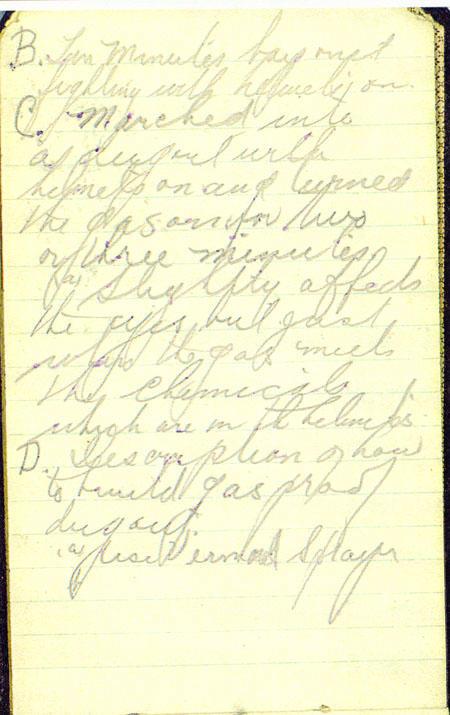 B. Ten Minutes bayonet
fighting with helmets on.
C. Marched into
a dugout with
helmets on and turned
the gas on for two
or three minutes
(a) Slightly affects
the eyes but just
when the gas meets
the chemicals
which are in th helmets
D. Description of how
to build gas proof
dugout
(a) Use Vermorel Sprayer